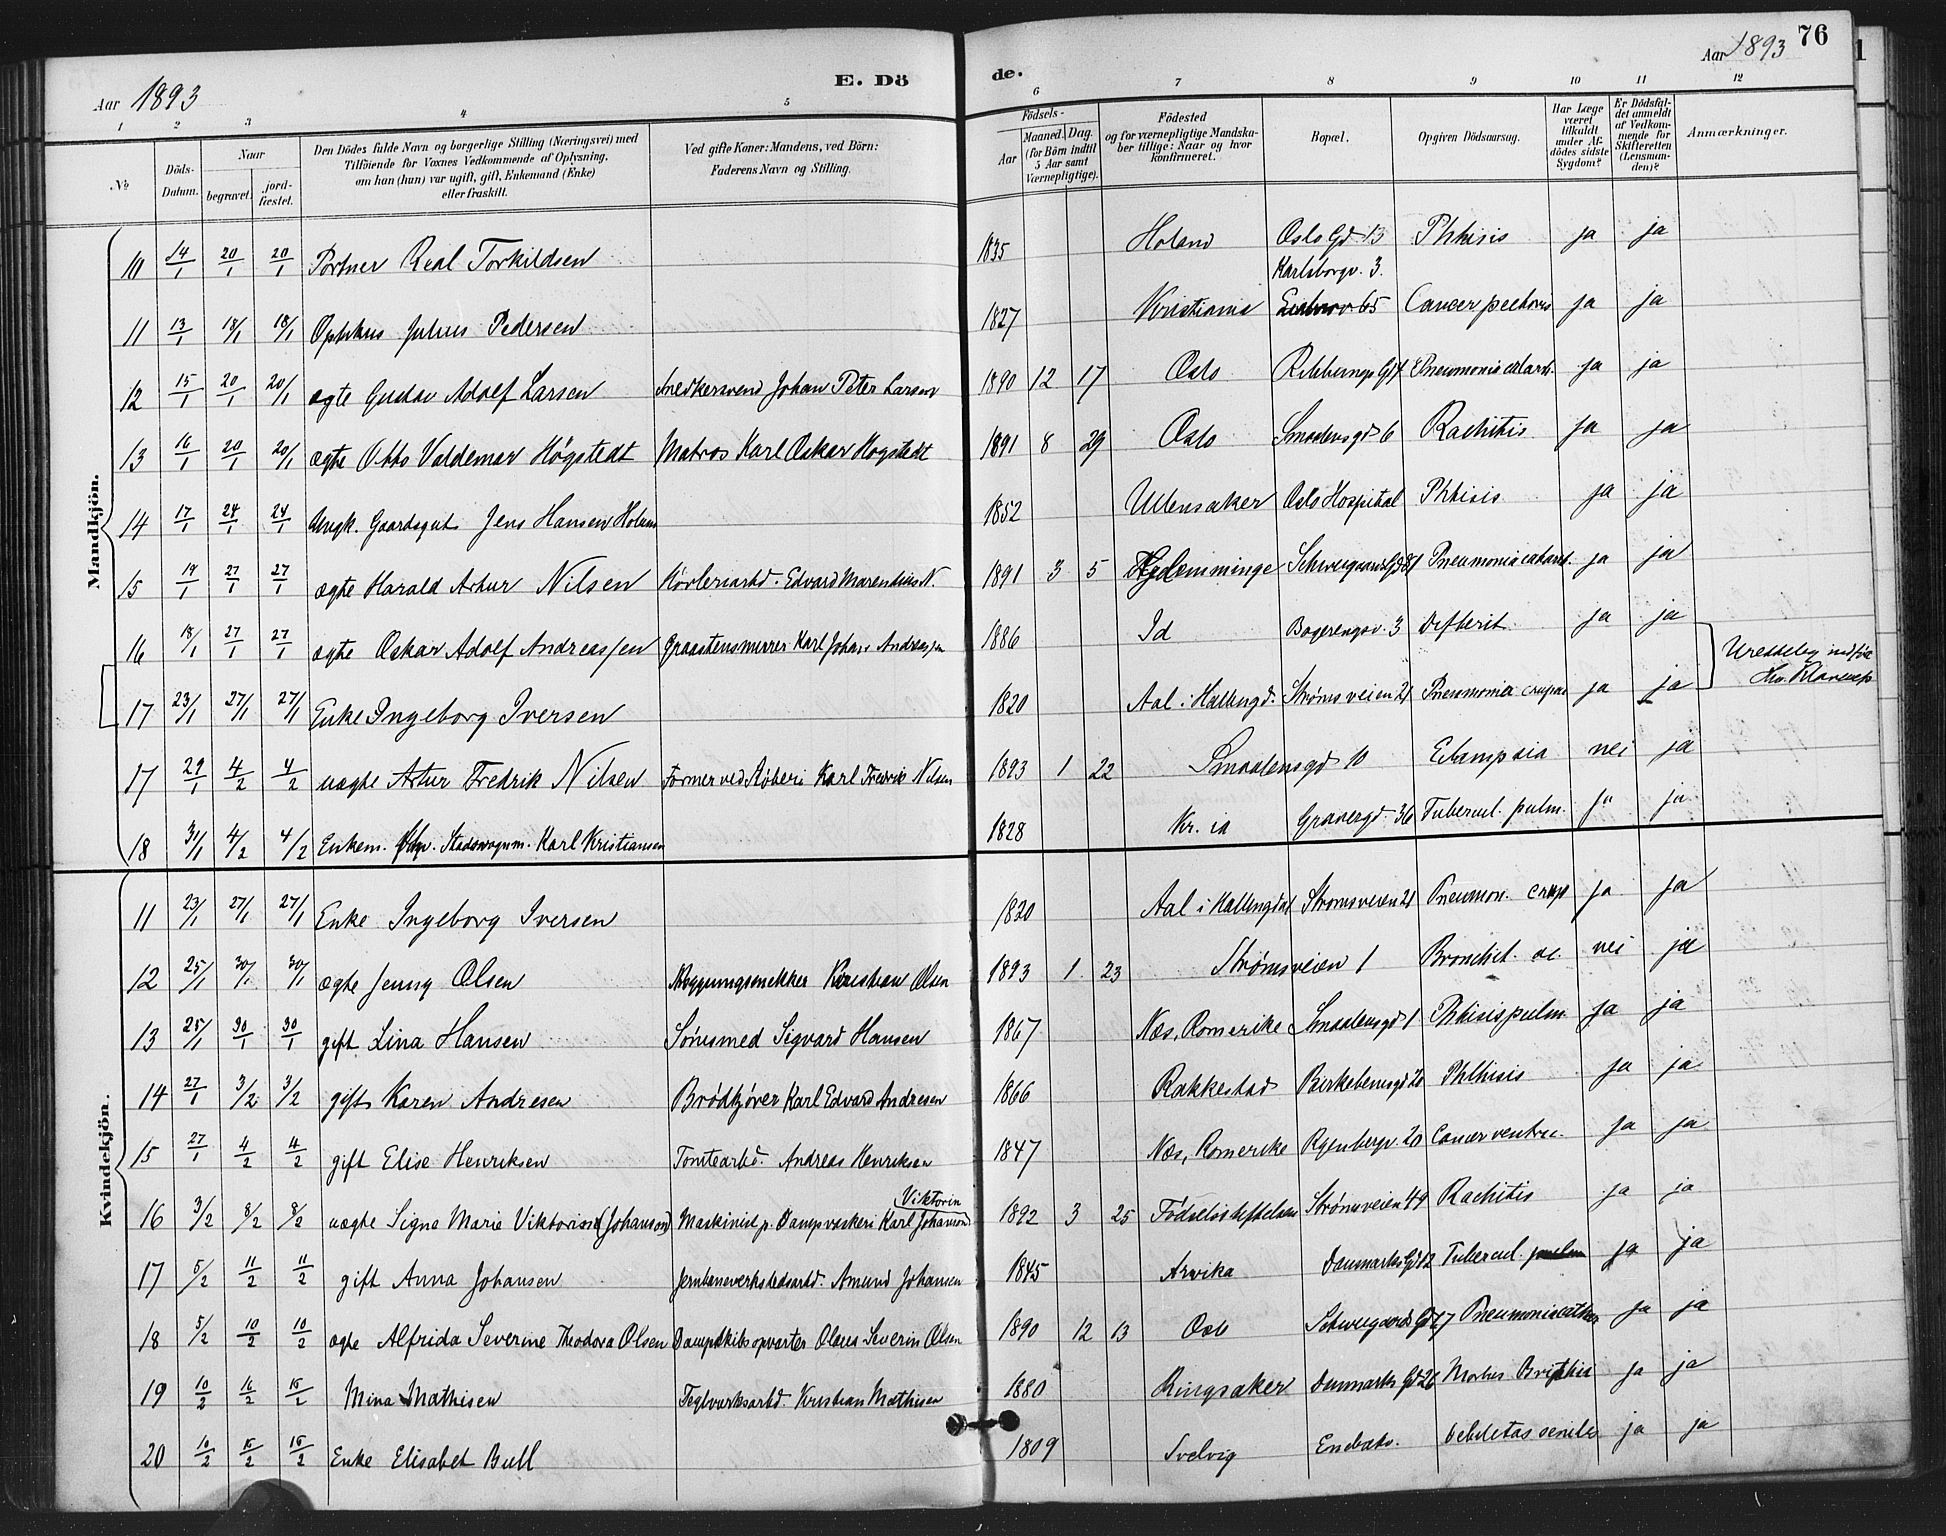 76
Aar 1893 E. Dö de. Aar 1893
1 2 3 4 5 6 7 8 9 10 11 12
No Döds-Datum. Naar begravet. jordfæstet. Den Dödes fulde Navn og borgerlige Stilling (Næringsvei) med Tilföiende for Voxnes Vedkommende af Oplysning, om han (hun) var ugift, gift, Enkemand (Enke) eller fraskilt. Ved gifte Koner: Mandens, ved Börn: Faderens Navn og Stilling. Födsels- Aar Maaned. Dag. (for Börn indtil 5 Aar samt Værnepligtige). Födested og for værnepligtige Mandskaber tillige: Naar og hvor konfirmeret. Bopæl. Opgiven Dödsaarsag. Har Læge været tilkaldt under Afdödes sidste Sygdom? Er Dödsfaldet anmeldt af Vedkommende for Skifteretten (Lensmanden)? Anmærkninger.
Mandkjön.
10 14/1 20/1 20/1 Portner Real Torkildsen 1835 Holand Oslo Gd 13 Phtisis ja ja
Karlsborgv. 3.
11 13/1 18/1 18/1 Julius Pedersen 1827 Kristiania 65 Cancer pectoris ja ja
12 15/1 20/1 20/1 ægte Gustav Adolf Larsen Snedkersvend Johan Peter Larsen 1890 12 17 Oslo Pneumonia catarrh. ja ja
13 16/1 20/1 20/1 ægte Otto Valdemar Høgstedt Matros Karl Oskar Høgstedt 1891 8 29 Oslo Smaalensgd 6 Rachitis ja ja
14 17/1 24/1 24/1 Ungk. Gaardsgut Jens Hansen Holum 1852 Ullensaker Oslo Hospital Phtisis ja ja
15 19/1 27/1 27/1 ægte Harald Artur Nilsen Høvleriarbd. Edvard Marendius N. 1891 3 5 Glemminge Pneumonia catarrh. ja ja
16 18/1 27/1 27/1 ægte Oskar Adolf Andreassen Graastensmurer Karl Johan Andreassen 1886 Id Bogerengsv. 3 Difterit ja ja
17 23/1 27/1 27/1 Enke Ingeborg Iversen 1820 Aal i Hallingd. Strømsveien 21 Pneumonia crupos ja ja Uretteleg indført
17 29/1 4/2 4/2 uægte Artur Fredrik Nilsen Former ved Støberi Karl Fredrik Nilsen 1893 1 22 Smaalensgd 10 Eclampsia nei ja
18 31/1 4/2 4/2 Enkem. Karl Kristiansen 1828 Kr. ia Gravergd 36 Tubercul. pulm. ja ja
Kvindekjön.
11 23/1 27/1 27/1 Enke Ingeborg Iversen 1820 Aal i Hallingdal Strømsveien 21 Pneumon. crup ja ja
12 25/1 30/1 30/1 ægte Jenny Olsen Bygningssnekker Kristian Olsen 1893 1 23 Strømsveien 1 Bronchit. ac. nei ja
13 25/1 30/1 30/1 gift Lina Hansen Sønesmed Sigvard Hansen 1867 Næs, Romerike Smaalensgd 1 Phtisis pulm ja ja
14 27/1 3/2 3/2 gift Karen Andresen Brødkjører Karl Edvard Andresen 1866 Rakkestad Birkebenergd 20 Phthisis ja ja
15 27/1 4/2 4/2 gift Elise Henriksen Tomtearbd. Andreas Henriksen 1847 Næs, Romerike Ryenbergv. 20 Cancer ventric. ja ja
16 3/2 8/2 8/2 uægte Signe Marie Viktorine (Johanson) Maskinist p. Dampvaskeri Karl Viktorin Johanson 1892 3 25 Fødselsstiftelsen Strømsveien 49 Rachitis ja ja
17 5/2 11/2 11/2 gift Anna Johansen Jernbaneverkstedsarbd. Amund Johansen 1845 Arvika Danmarks Gd 12 Tubercul. pulm ja ja
18 5/2 10/2 10/2 ægte Alfrida Severine Theodora Olsen Dampskibsopvarter Olaus Severin Olsen 1890 12 13 Oslo Schweigaards Gd 67 Pneumonia catharr ja ja
19 10/2 16/2 15/2 Mina Mathisen Teglverksarbd. Kristian Mathisen 1880 Ringsaker Danmarks Gd 26 Morbus Brightii ja ja
20 10/2 15/2 15/2 Enke Elisabet Bull 1809 Svelvig Enebakv. Debilitas senilis ja ja